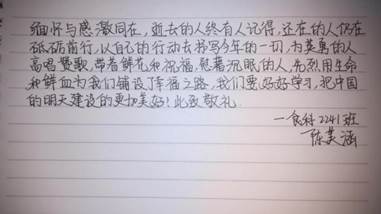 缅怀与感激同在，逝去的人终有人记得，还在的人仍在
砥砺前行，以自己的行动去书写今年的一切，为英勇的人
高唱赞歌，带着鲜花和祝福，慰藉沉眠的人，先烈用生命
和鲜血为我们铺设了幸福之路，我们要好好学习，把中国
的明天建设的更加美好！此致敬礼
一食科2241班
陈美涵